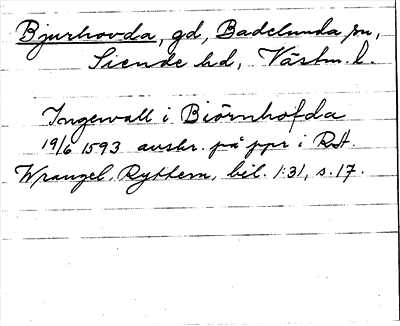 Bjurhovda, gd, Badelunda sn,
Siende hd, Västm. l.
Ingewall i Biörnhofda
19/6 1593 avskr. på ppr i RA.
Wrangel, Ryttern, bil. 1:31, s. 17.